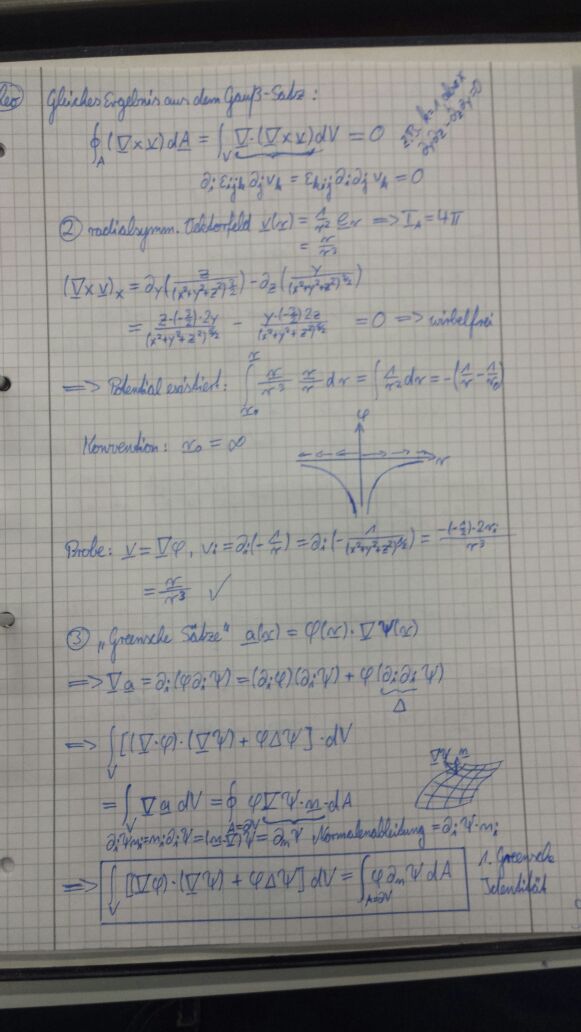 Gleiches Ergebnis aus dem Gauß-Satz:
∮_A (∇×v) dA = ∫_V ∇·(∇×v) dV = 0
∂_i ε_ijk ∂_j v_k = ε_kij ∂_i ∂_j v_k = 0
∂y∂z - ∂z∂y = 0
② radialsymm. Vektorfeld v(r) = 1/r² e_r ⟹ I_A = 4π
= r/r³
(∇×v)_x = ∂_y (z/(x²+y²+z²)^(3/2)) - ∂_z (y/(x²+y²+z²)^(3/2))
= z·(-3/2)·2y/(x²+y²+z²)^(5/2) - y·(-3/2)2z/(x²+y²+z²)^(5/2) = 0 ⟹ wirbelfrei
⟹ Potential existiert: ∫_{x₀}^{x} r/r³ r/r dr = ∫ 1/r² dr = -(1/r - 1/r₀)
φ
Konvention: x₀ = ∞
r
Probe: v = ∇φ, v_i = ∂_i(-1/r) = ∂_i(-1/(x²+y²+z²)^(1/2)) = -(-1/2)·2r_i/r³
= r/r³ ✓
③ „Greensche Sätze" a(x) = φ(x)·∇Ψ(x)
⟹ ∇a = ∂_i(φ∂_iΨ) = (∂_iφ)(∂_iΨ) + φ(∂_i∂_iΨ)
Δ
⟹ ∫_V [(∇·φ)·(∇Ψ) + φΔΨ]·dV
∇Ψ n
= ∫_V ∇a dV = ∮_{A=∂V} φ∇Ψ·n·dA
∂_iΨn_i = n_i∂_iΨ = (n·∇)Ψ = ∂_nΨ Normalenableitung = ∂_iΨ·n_i
⟹ ∫_V [(∇φ)·(∇Ψ) + φΔΨ] dV = ∫_{A=∂V} φ∂_nΨ dA
1. Greensche
Identität